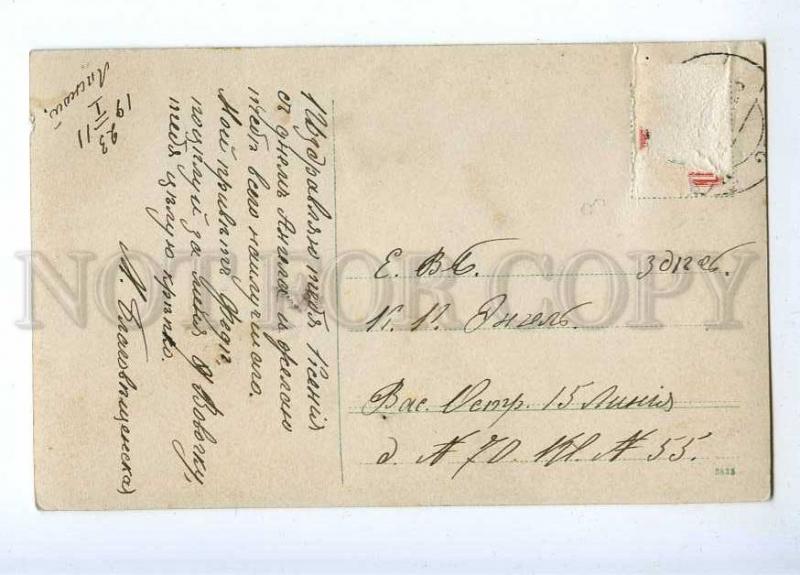 Лѣсной.
19 23/I 11
Поздравляю тебя Ксенія
съ днемъ Ангела и желаю
тебѣ всего наилучшаго.
Мой привѣтъ Федѣ.
поцѣлуй за меня Вовочку,
тебя цѣлую крѣпко.
М. Благовѣщенская
Е. В Б. Здѣсь.
К. К. Энгель.
Вас. Остр. 15 Линія
д. № 70. кв. № 55.
NOT FOR COPY